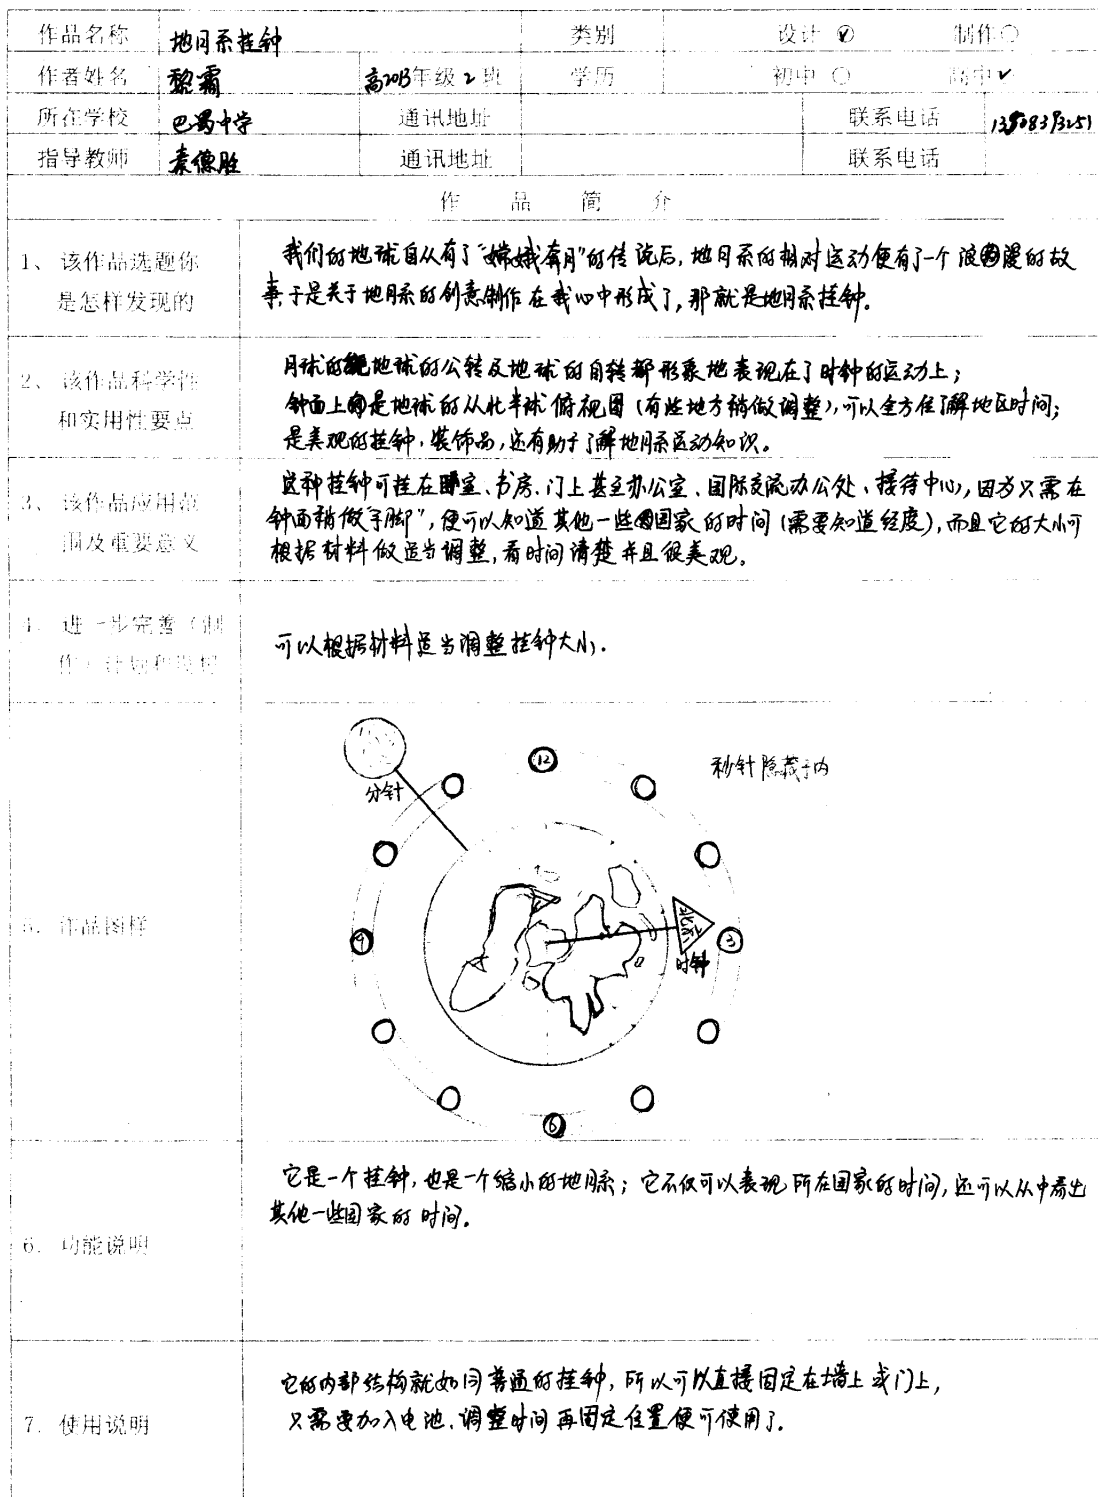 作品名称 地月系挂钟 类别 设计 制作
作者姓名 黎霜 高2013年级2班 学历 初中 高中✓
所在学校 巴蜀中学 通讯地址 联系电话
指导教师 袁傑胜 通讯地址 联系电话
作品简介
1、该作品选题你是怎样发现的
我们的地球自从有了“嫦娥奔月”的传说后,地月系的相对运动便有了一个浪漫的故
事于是关于地月系的创意制作在我心中形成了,那就是地月系挂钟.
2、该作品科学性和实用性要点
月球的绕地球的公转及地球的自转都形象地表现在了时钟的运动上;
钟面上的是地球的从北半球俯视图(有些地方稍做调整),可以全方位了解地区时间;
是美观的挂钟,装饰品,还有助于了解地月系运动知识。
3、该作品应用范围及重要意义
这种挂钟可挂在卧室、书房、门上甚至办公室、国际交流办公处、接待中心,因为只需在
钟面稍做“手脚”,便可以知道其他一些国家的时间(需要知道经度),而且它的大小可
根据材料做适当调整,看时间清楚并且很美观。
4、进一步完善(制作)计划和设想
可以根据材料适当调整挂钟大小.
5、作品图样
分针
12
秒针隐藏于内
9
北京
时钟
3
6
6、功能说明
它是一个挂钟,也是一个缩小的地月系;它不仅可以表现所在国家的时间,还可以从中看出
其他一些国家的时间。
7、使用说明
它的内部结构就如同普通的挂钟,所以可以直接固定在墙上或门上,
只需要加入电池、调整时间再固定位置便可使用了.